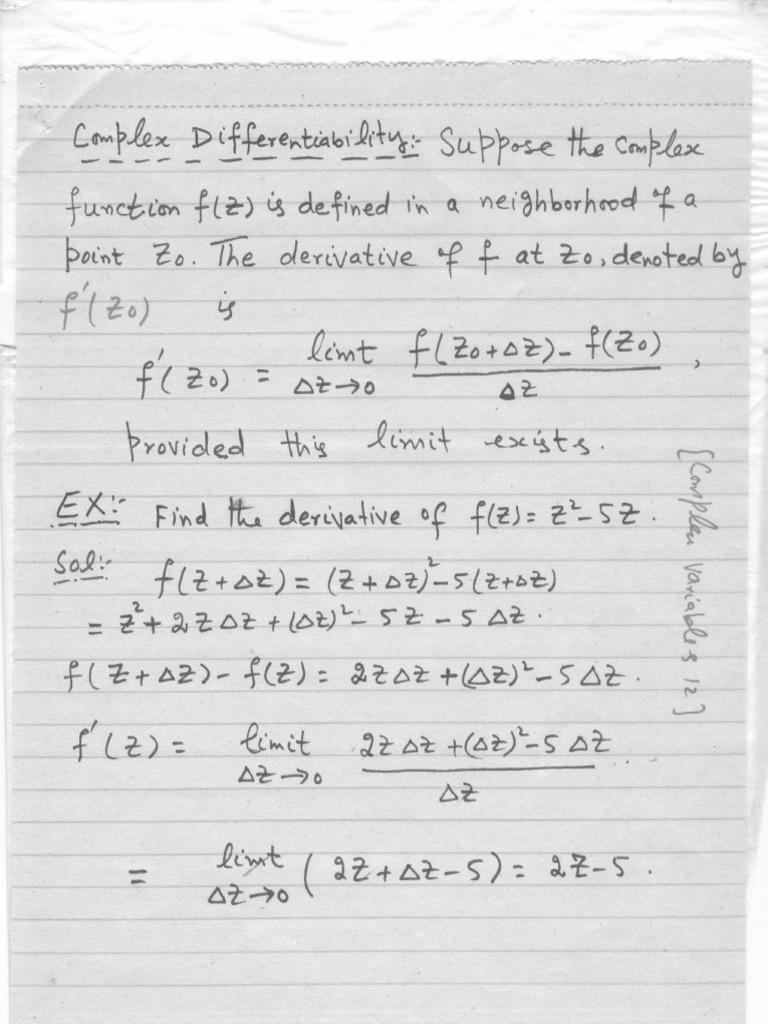 Complex Differentiability:- Suppose the complex
function f(z) is defined in a neighborhood of a
point z₀. The derivative of f at z₀, denoted by
f'(z₀) is
f'(z₀) = limt Δz→0 (f(z₀+Δz) - f(z₀))/Δz ,
provided this limit exists.
EX:- Find the derivative of f(z) = z² - 5z.
Sol:- f(z+Δz) = (z+Δz)² - 5(z+Δz)
= z² + 2zΔz + (Δz)² - 5z - 5Δz.
f(z+Δz) - f(z) = 2zΔz + (Δz)² - 5Δz.
f'(z) = limit Δz→0 (2zΔz + (Δz)² - 5Δz)/Δz
= limt Δz→0 (2z + Δz - 5) = 2z - 5.
[Complex Variables 12]